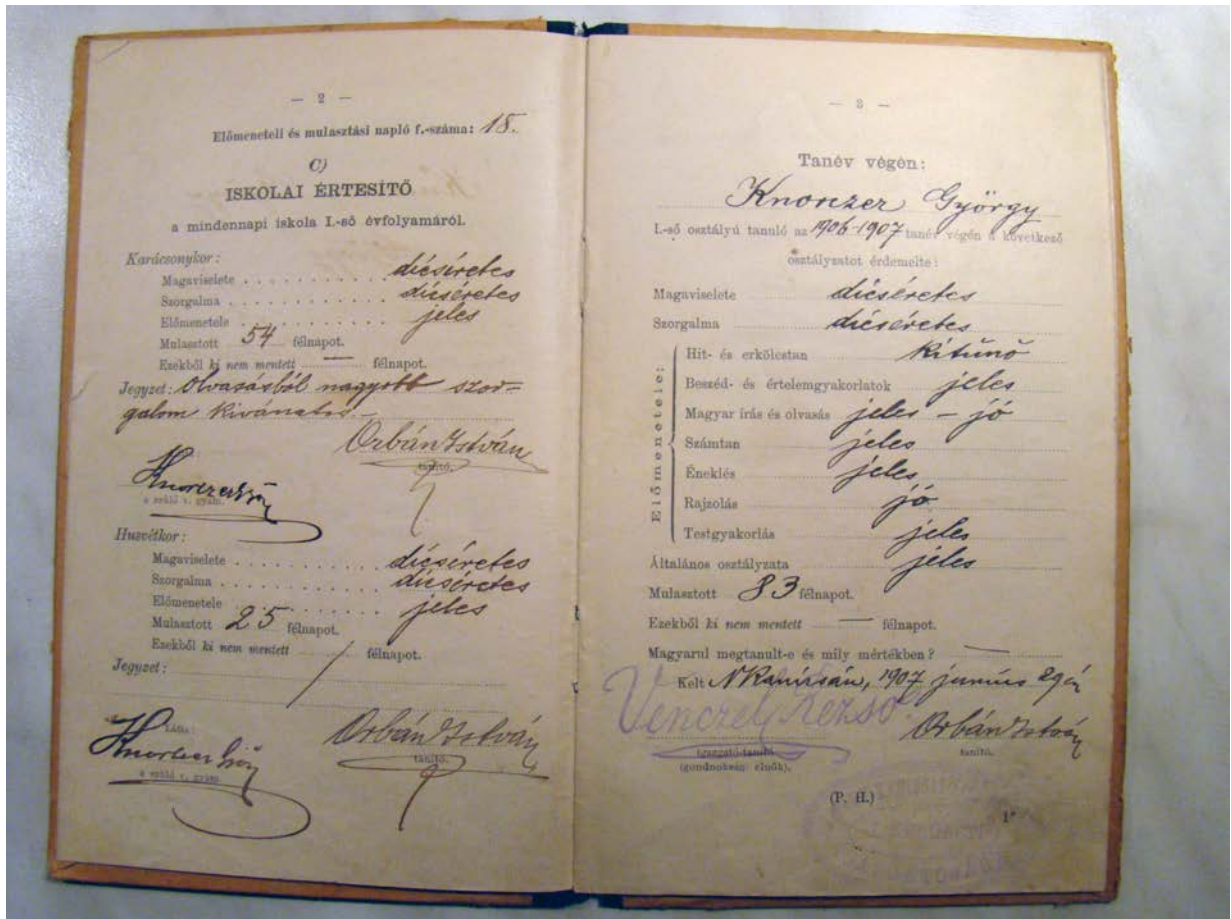 — 2 —
Előmeneteli és mulasztási napló f.-száma: 18.
C)
ISKOLAI ÉRTESÍTŐ
a mindennapi iskola I.-ső évfolyamáról.
Karácsonykor:
Magaviselete . . . . . . . . . . dícséretes
Szorgalma . . . . . . . . . . dícséretes
Előmenetele . . . . . . . . . . jeles
Mulasztott 54 félnapot.
Ezekből ki nem mentett — félnapot.
Jegyzet: Olvasásból nagyobb szor-
galom kivánatos.—
Orbán István
tanító.
a szülő v. gyám.
Husvétkor:
Magaviselete . . . . . . . . . . dícséretes
Szorgalma . . . . . . . . . . dícséretes
Előmenetele . . . . . . . . . . jeles
Mulasztott 25 félnapot.
Ezekből ki nem mentett / félnapot.
Jegyzet:
Látta:
Orbán István
tanító.
a szülő v. gyám.
— 3 —
Tanév végén:
Knorczer György
I.-ső osztályú tanuló az 1906-1907 tanév végén a következő
osztályzatot érdemelte:
Magaviselete dícséretes
Szorgalma dícséretes
Előmenetele:
Hit- és erkölcstan kitűnő
Beszéd- és értelemgyakorlatok jeles
Magyar írás és olvasás jeles – jó
Számtan jeles
Éneklés jeles
Rajzolás jó
Testgyakorlás jeles
Általános osztályzata jeles
Mulasztott 83 félnapot.
Ezekből ki nem mentett — félnapot.
Magyarul megtanult-e és mily mértékben? —
Kelt NKanizsán, 1907 junius 29én
Venczel Rezső
Orbán István
igazgató-tanító
tanító.
(gondnoksági elnök).
(P. H.)
1*